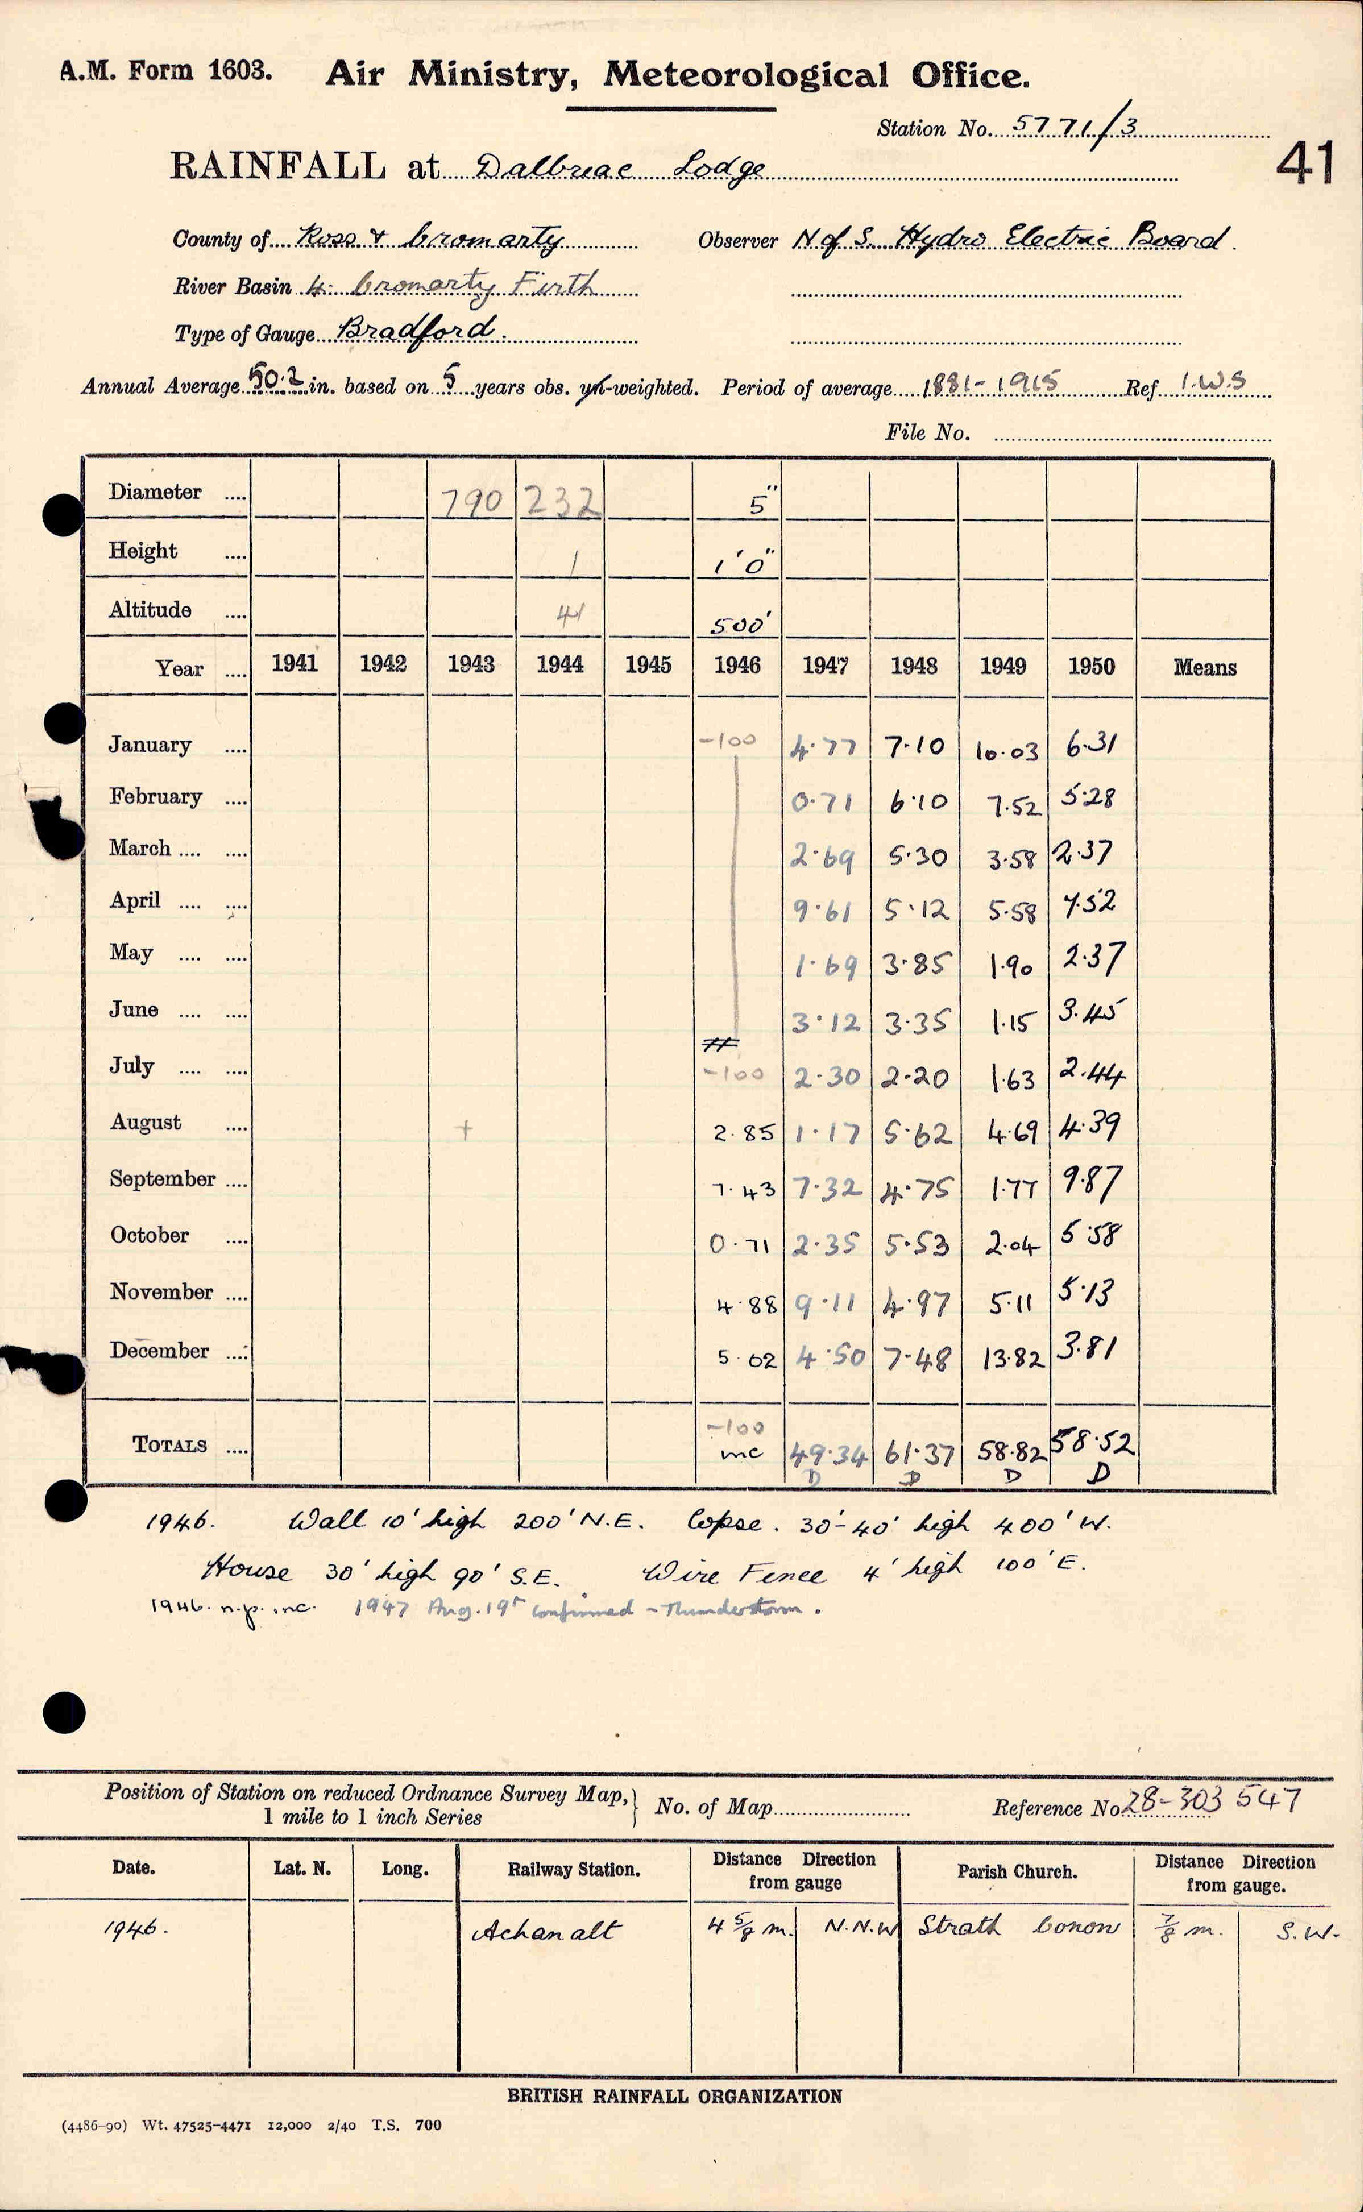 A.M. Form 1603. Air Ministry, Meteorological Office.
Station No. 5771/3
41
RAINFALL at Dalbreac Lodge
County of Ross & Cromarty Observer N of S. Hydro Electric Board.
River Basin 4. Cromarty Firth
Type of Gauge Bradford.
Annual Average 50.2 in. based on 5 years obs. un-weighted. Period of average 1881-1915 Ref I.W.S
File No.
Diameter .... 790 232 5"
Height .... 1 1'0"
Altitude .... 41 500'
Year .... 1941 1942 1943 1944 1945 1946 1947 1948 1949 1950 Means
January .... -100 4.77 7.10 10.03 6.31
February .... 0.71 6.10 7.52 5.28
March .... .... 2.69 5.30 3.58 2.37
April .... .... 9.61 5.12 5.58 7.52
May .... .... 1.69 3.85 1.90 2.37
June .... .... 3.12 3.35 1.15 3.45
July .... .... -100 2.30 2.20 1.63 2.44
August .... + 2.85 1.17 5.62 4.69 4.39
September .... 7.43 7.32 4.75 1.77 9.87
October .... 0.71 2.35 5.53 2.04 5.58
November .... 4.88 9.11 4.97 5.11 5.13
December .... 5.02 4.50 7.48 13.82 3.81
-100
TOTALS .... inc 49.34 61.37 58.82 58.52
D D D D
1946. Wall 10' high 200' N.E. Copse. 30'-40' high 400' W.
House 30' high 90' S.E. Wire Fence 4' high 100' E.
1946. n.p. inc. 1947 Aug. 19th confirmed - Thunderstorm.
Position of Station on reduced Ordnance Survey Map,
1 mile to 1 inch Series No. of Map Reference No 28-303 547
Date. Lat. N. Long. Railway Station. Distance Direction from gauge Parish Church. Distance Direction from gauge.
1946. Achanalt 4 5/8 m. N.N.W Strath Conon 7/8 m. S.W.
BRITISH RAINFALL ORGANIZATION
(4486-90) Wt. 47525-4471 12,000 2/40 T.S. 700